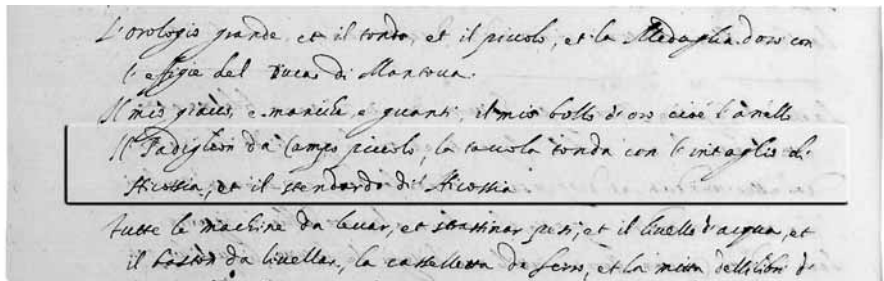 L'orologio grande et il tondo, et il piccolo, et la Medaglia d'oro con
l'effigie del Duca di Mantova.
Il mio giacco, e maniche e guanti, il mio bollo d'oro cioè l'anello
Il Padiglion da Campo piccolo, la tavola tonda con l'intaglio di
Nicossia, et il stendardo di Nicossia
Tutte le machine da levar, et strassinar pesi, et il livello d'acqua, et
il baston da livellar, la casselletta de ferro, et la mitta delli libri d